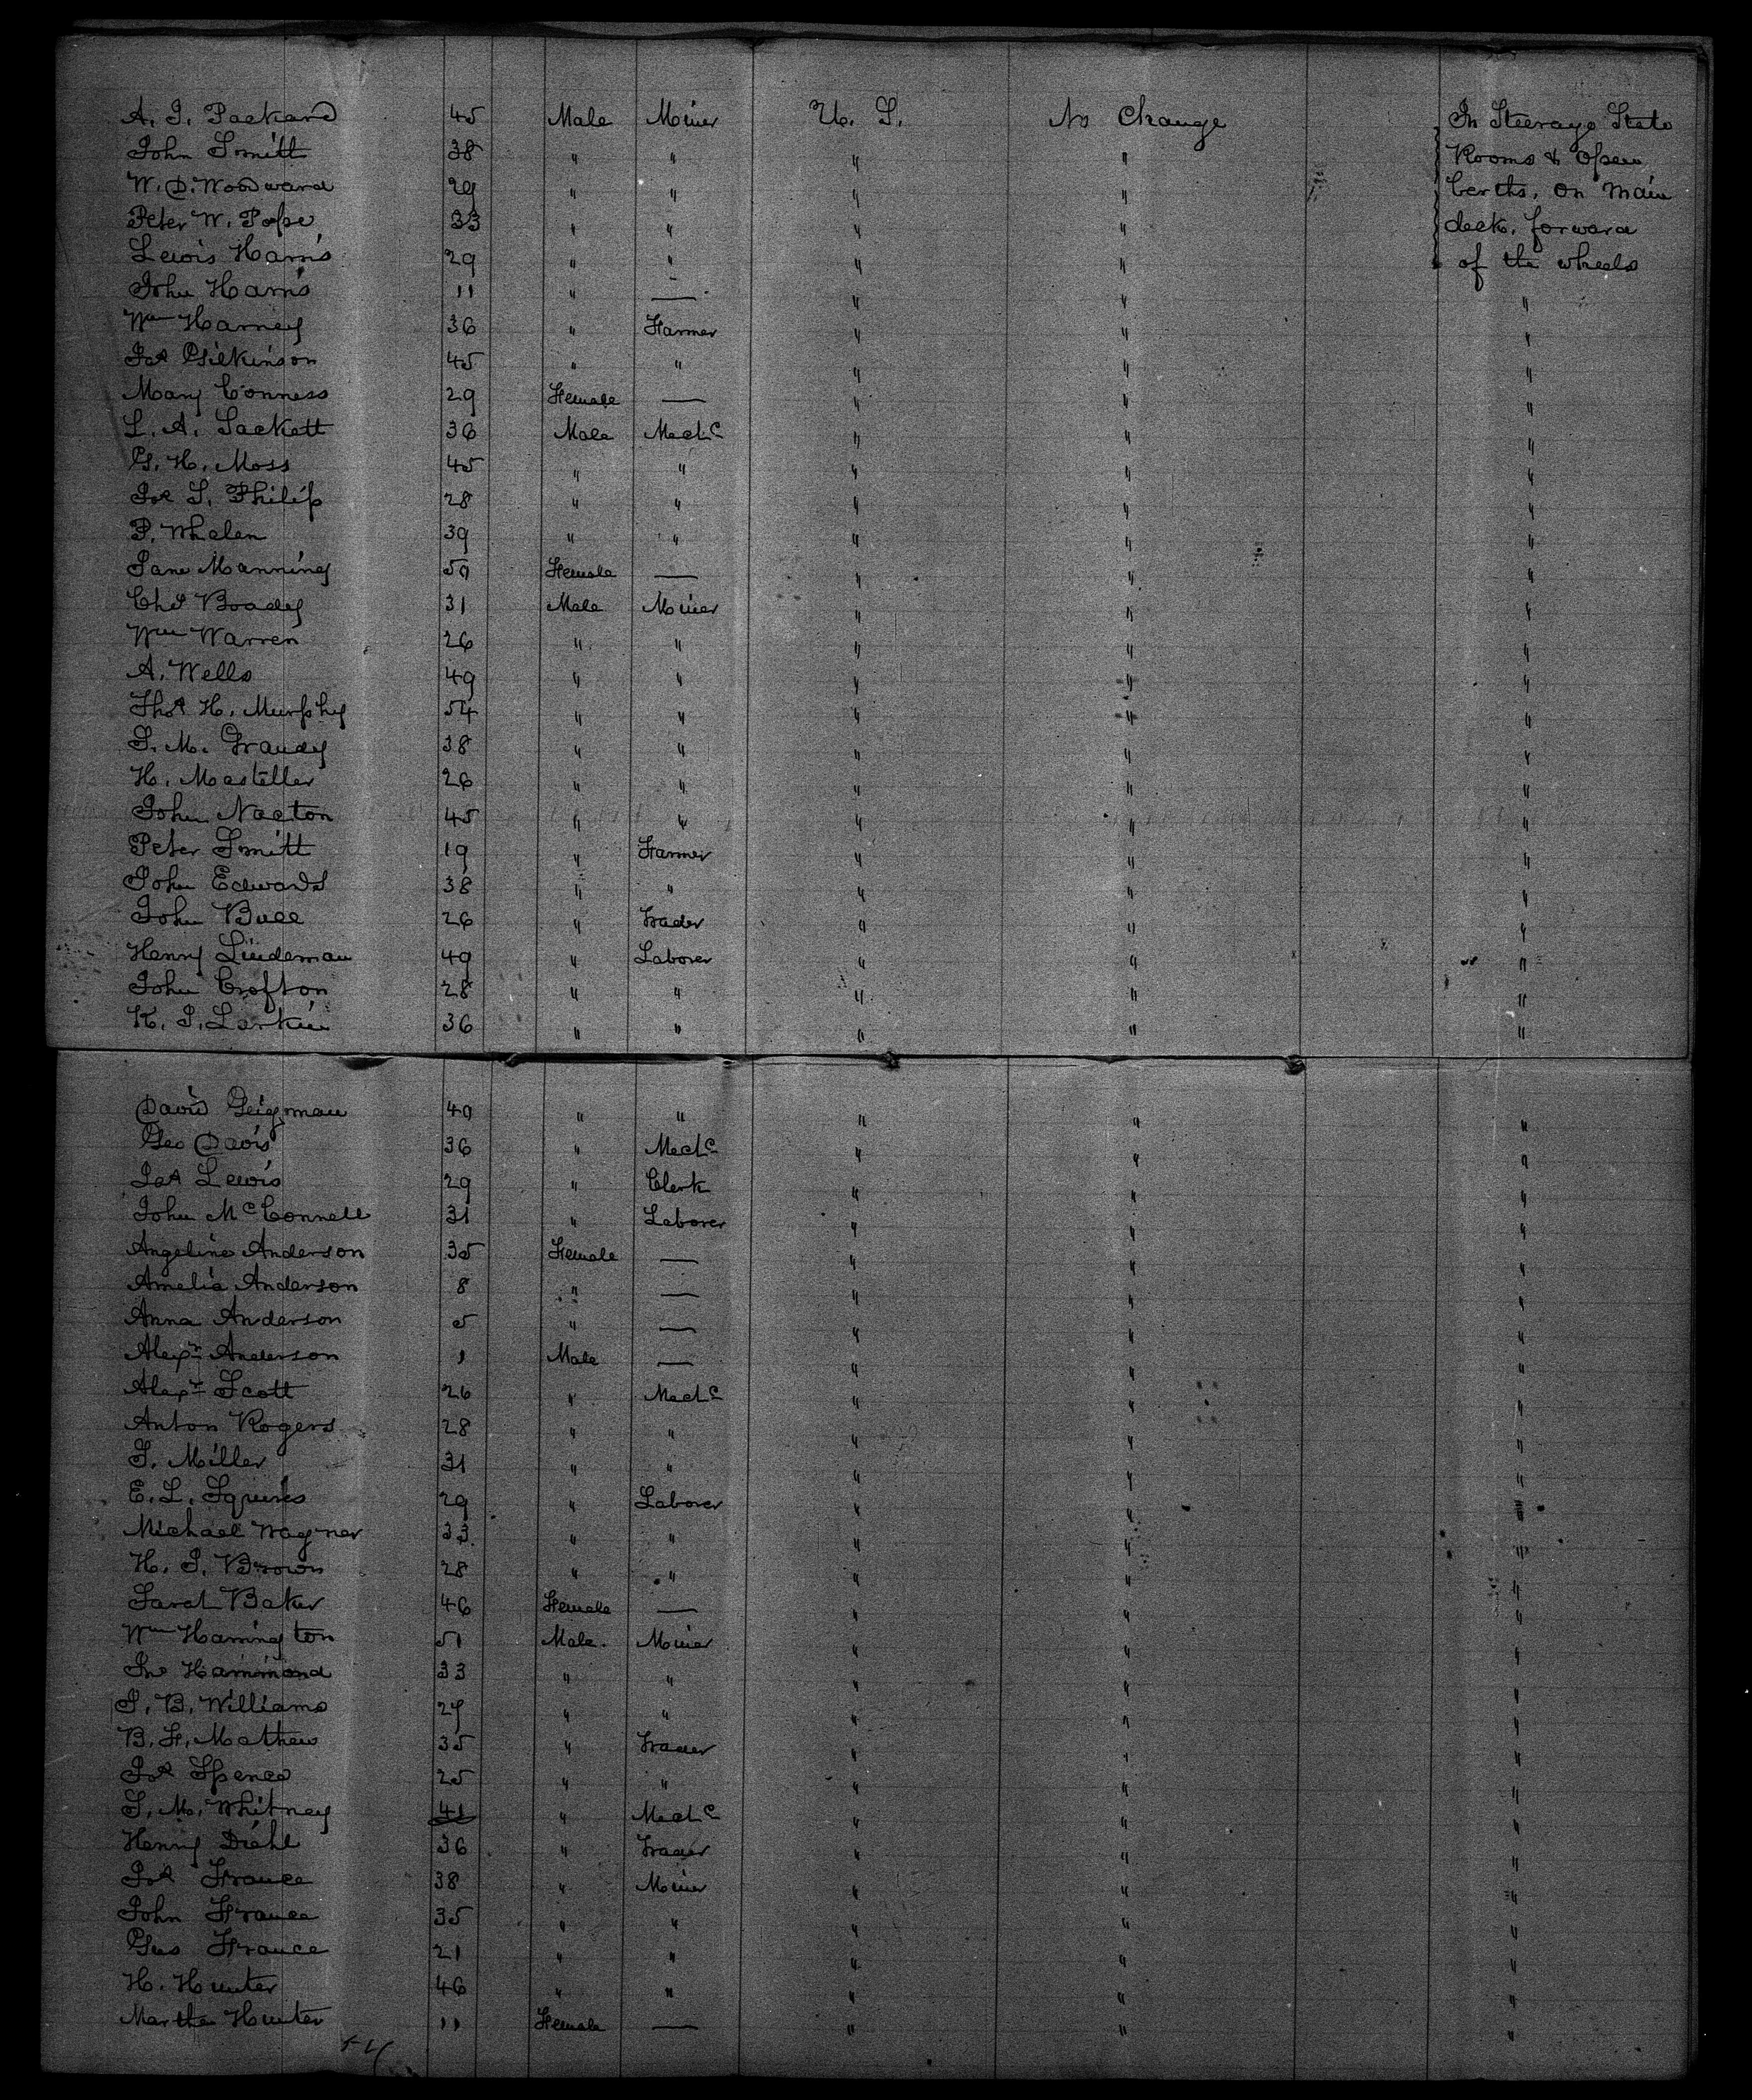 A. J. Packard 45 Male Miner U. S. No Change In Steerage State
John Smith 38 " " " " Rooms & open
W. D. Woodward 29 " " " " berths, on main
Peter W. Pope 33 " " " " deck, forward
Lewis Harris 29 " " " " of the wheels
John Harris 11 " — " " "
Wm Harney 36 " Farmer " " "
Jas Gilkinson 45 " " " " "
Mary Conness 29 Female — " " "
L. A. Sackett 36 Male Mechc " " "
G. H. Moss 45 " " " " "
Jos S. Philip 28 " " " " "
P. Whelan 39 " " " " "
Jane Manning 59 Female — " " "
Chs Boady 31 Male Miner " " "
Wm Warren 26 " " " " "
A. Wells 49 " " " " "
Thos H. Murphy 54 " " " " "
J. M. Grandy 38 " " " " "
H. Masteller 26 " " " " "
John Nacton 45 " " " " "
Peter Smith 19 " Farmer " " "
John Edwards 38 " " " " "
John Bull 26 " Trader " " "
Henry Lindeman 49 " Laborer " " "
John Crofton 28 " " " " "
K. J. Larkin 36 " " " " "
David Geigman 49 " " " " "
Geo Davis 36 " Mechc " " "
Jas Lewis 29 " Clerk " " "
John McConnell 31 " Laborer " " "
Angeline Anderson 35 Female — " " "
Amelia Anderson 8 " — " " "
Anna Anderson 5 " — " " "
Alexr Anderson 1 Male — " " "
Alexr Scott 26 " Mechc " " "
Anton Rogers 28 " " " " "
J. Miller 31 " " " " "
E. L. Squires 29 " Laborer " " "
Michael Wagner 33 " " " " "
H. J. Brown 28 " " " " "
Sarah Baker 46 Female — " " "
Wm Harrington 51 Male Miner " " "
Jno Hammond 33 " " " " "
J. B. Williams 27 " " " " "
B. F. Mathew 35 " Trader " " "
Jos Spence 25 " " " " "
J. M. Whitney 41 " Mechc " " "
Henry Diehl 36 " Trader " " "
Jos France 38 " Miner " " "
John France 35 " " " " "
Geo France 21 " " " " "
H. Hunter 46 " " " " "
Martha Hunter 11 Female — " " "
54